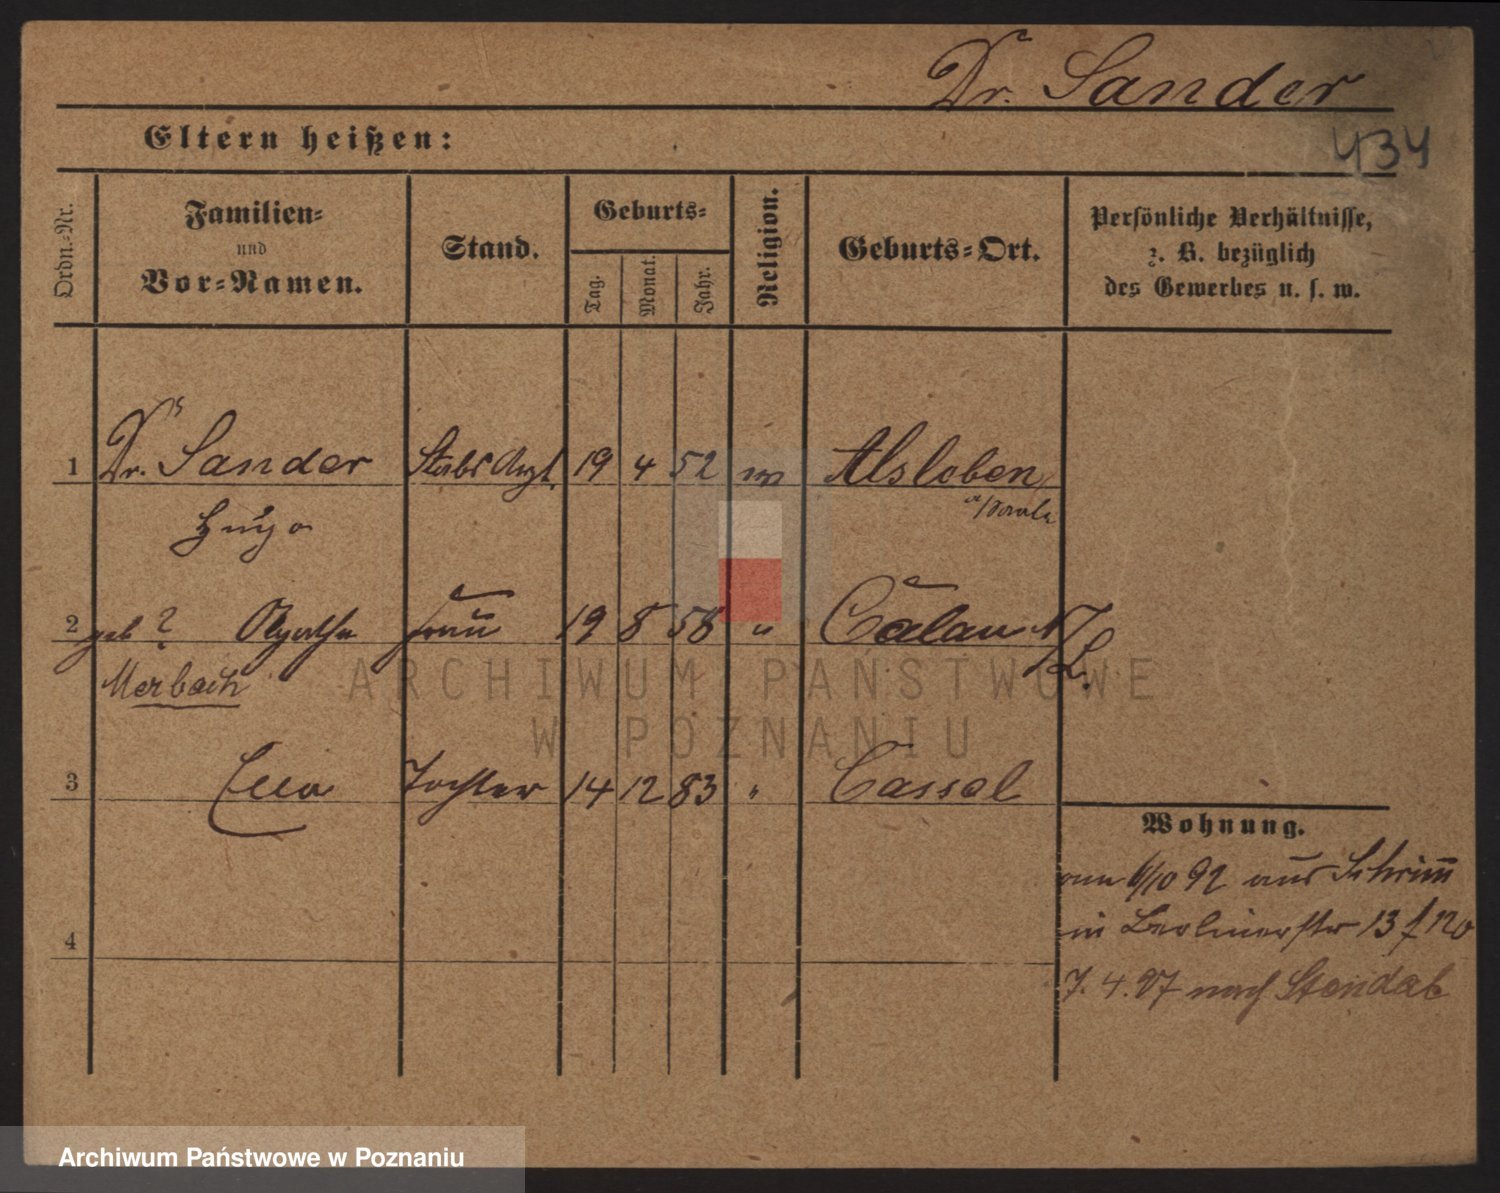 Dr. Sander
434
Eltern heißen:
Ordn.-Nr.
Familien-
und
Vor-Namen.
Stand.
Geburts-
Tag.
Monat.
Jahr.
Religion.
Geburts-Ort.
Persönliche Verhältnisse,
z. B. bezüglich
des Gewerbes u. s. w.
1 Dr. Sander Stabs Arzt. 19 4 52 Alsleben
a/Saale
Hugo
2 geb ? Frau 19 8 58 " Calau N/L.
Merbach
3 Tochter 14 12 83 " Cassel
Wohnung.
am 6/10 92 aus Schrimm
in Berlinerstr 13
4
7. 4. 97 nach Stendal
ARCHIWUM PAŃSTWOWE
W POZNANIU
Archiwum Państwowe w Poznaniu